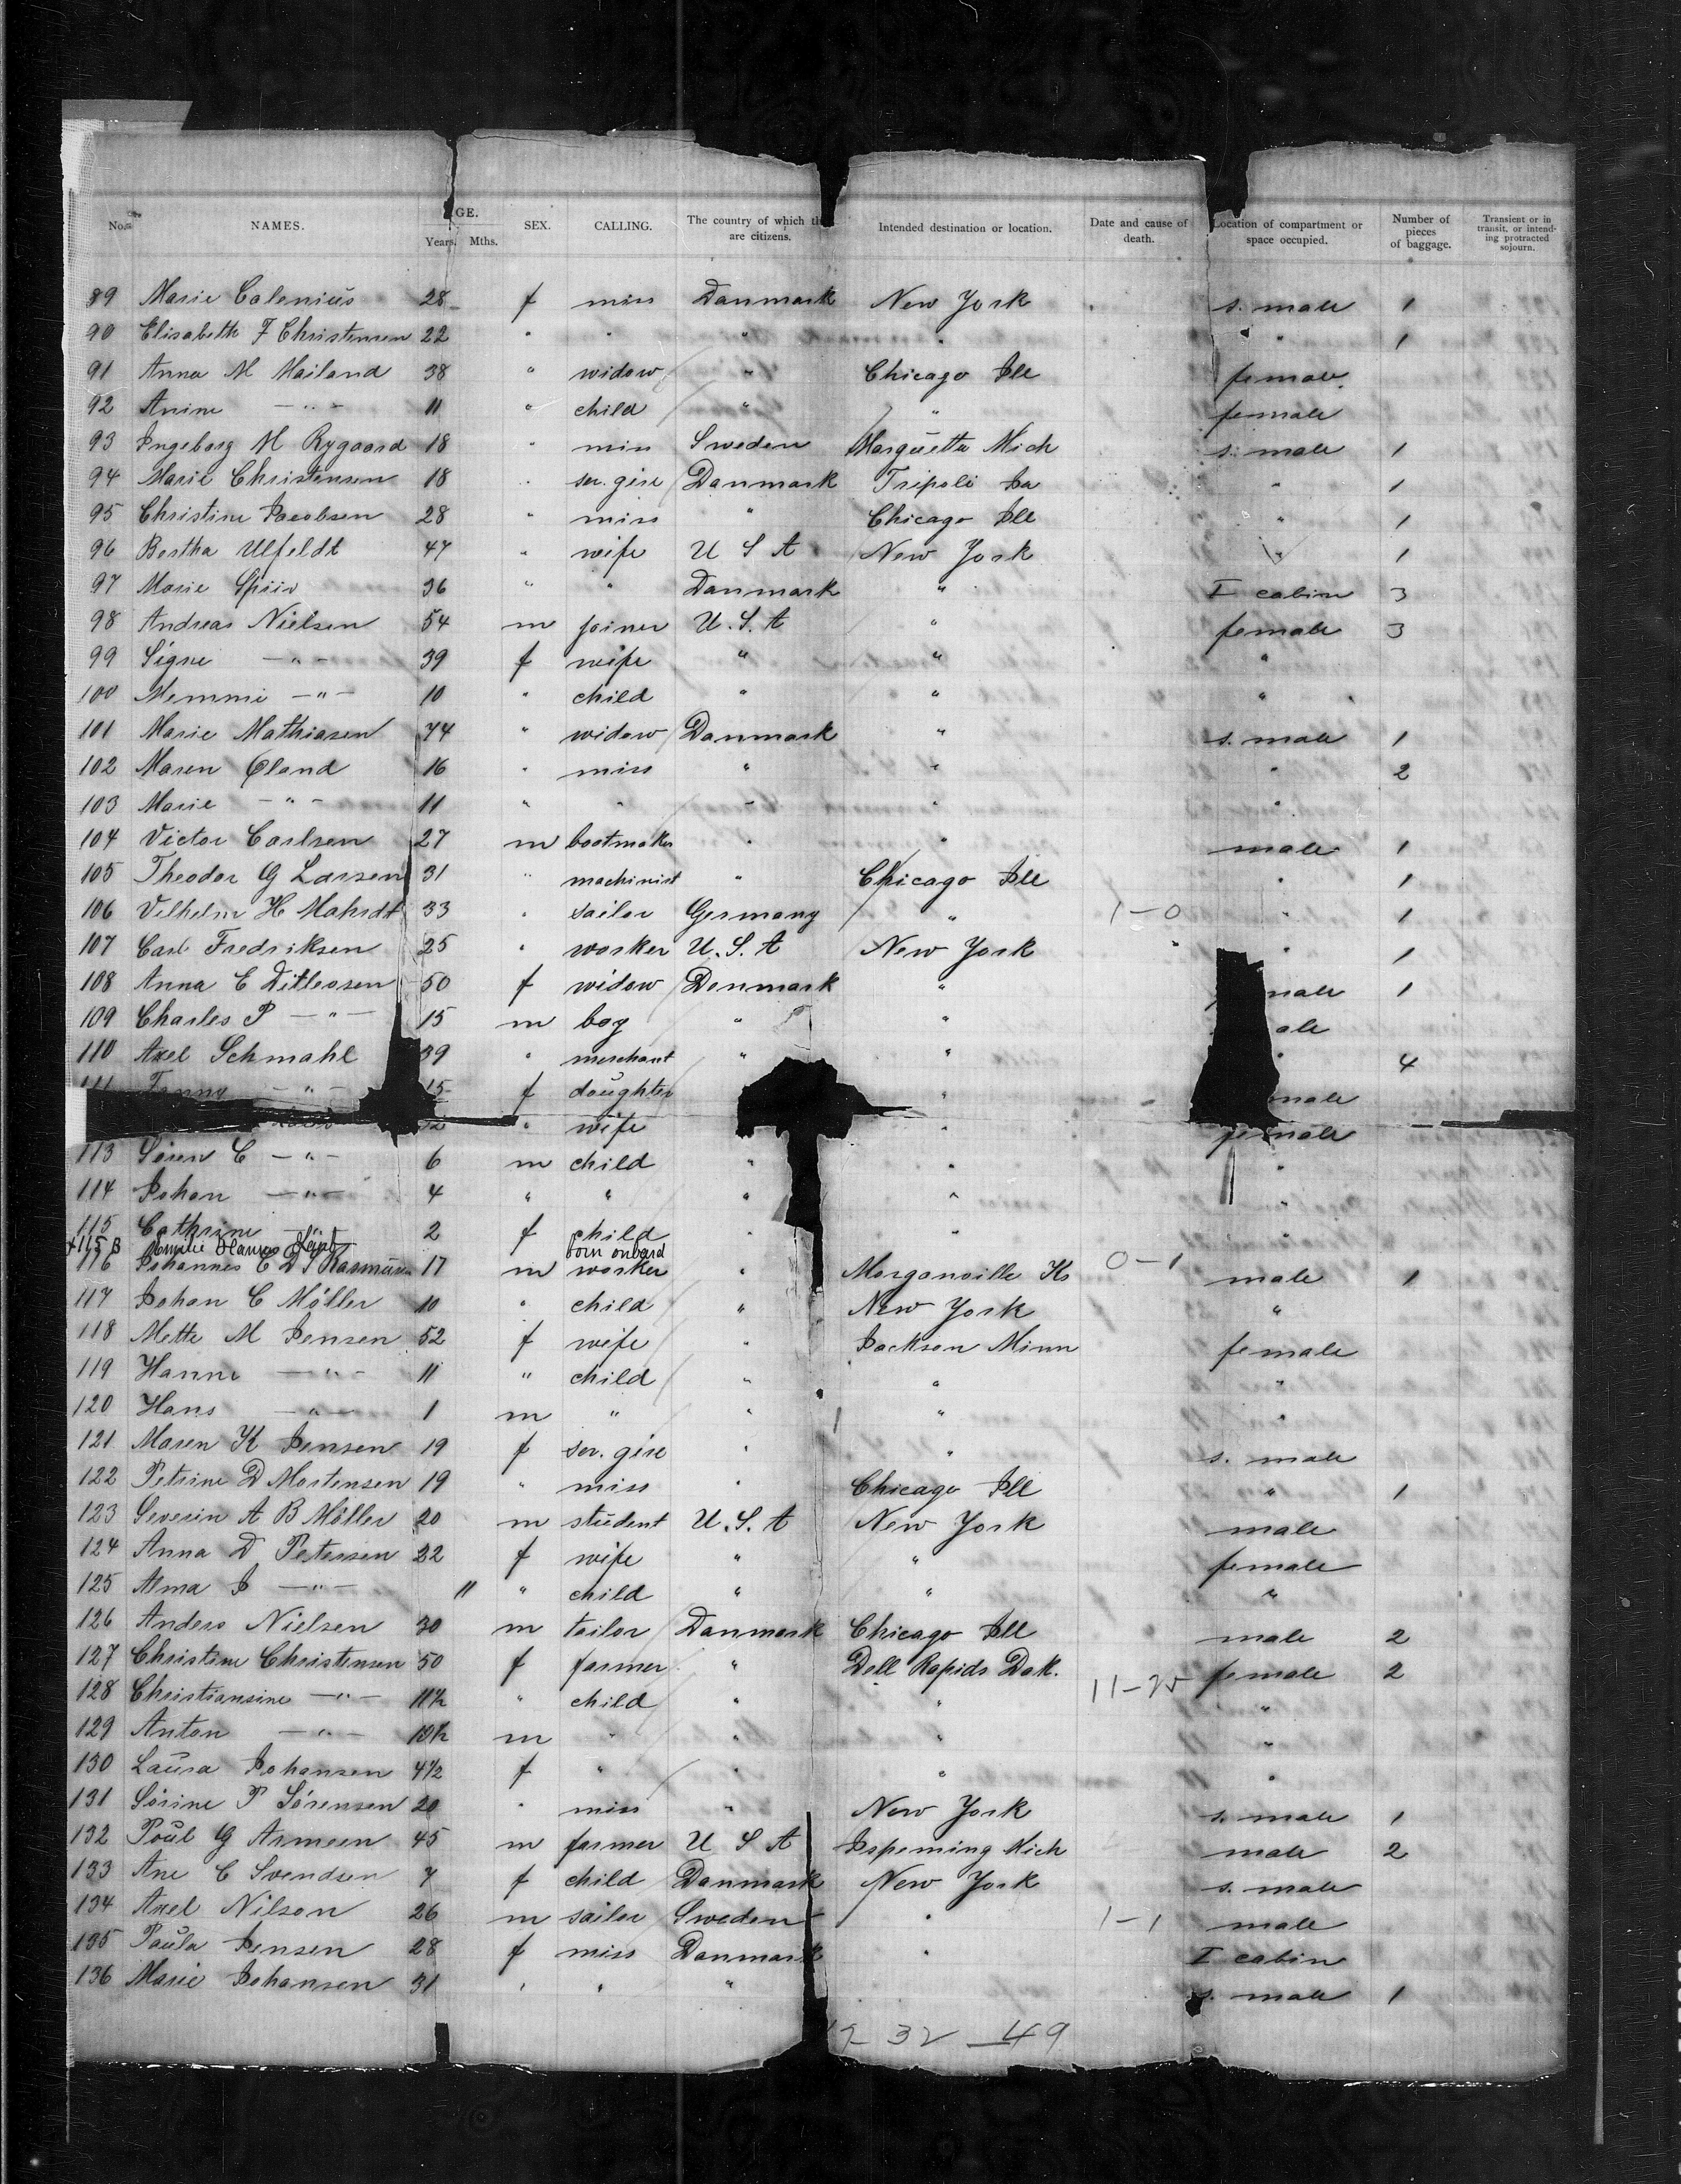 No. NAMES. AGE. Years. Mths. SEX. CALLING. The country of which they are citizens. Intended destination or location. Date and cause of death. Location of compartment or space occupied. Number of pieces of baggage. Transient or in transit, or intending protracted sojourn.
89 Marie Calenius 28 f miss Danmark New York s. male 1
90 Elisabeth F Christensen 22 " " " " " 1
91 Anna M Mailand 38 " widow " Chicago Ill female
92 Anine -"- 11 " child " " female
93 Ingeborg M Rygaard 18 " miss Sweden Marquette Mich s. male 1
94 Marie Christensen 18 " ser. girl Danmark Tripoli Ia " 1
95 Christine Jacobsen 28 " miss " Chicago Ill " 1
96 Bertha Ulfeldt 47 " wife U S A New York " 1
97 Marie Spiir 36 " " Danmark " I cabin 3
98 Andreas Nielsen 54 m joiner U.S.A " female 3
99 Signe -"- 39 f wife " " "
100 Memmi -"- 10 " child " " "
101 Marie Mathiasen 44 " widow Danmark " s. male 1
102 Maren Øland 16 " miss " " " 2
103 Marie -"- 11 " " " " "
104 Victor Carlsen 27 m bootmaker " " male 1
105 Theodor G Larsen 31 " machinist " Chicago Ill " 1
106 Vilhelm H Mahrdt 33 " sailor Germany " 1-0 " 1
107 Carl Fredriksen 25 " worker U.S.A New York " 1
108 Anna C Ditlevsen 50 f widow Denmark " male 1
109 Charles P -"- 15 m boy " " ale
110 Axel Schmahl 39 " merchant " " " 4
111 Fanny -"- 15 f daughter " male
" wife " female
113 Sören C -"- 6 m child " " "
114 Johan -"- 4 " " " " "
115 Cathrine -"- 2 f child " " "
+115 B born onbord
116 Johannes C D S Rasmüssen 17 m worker " Morganville Ks 0-1 male 1
117 Johan C Möller 10 " child " New York "
118 Mette M Jensen 52 f wife " Jackson Minn female
119 Hanne -"- 11 " child " " "
120 Hans -"- 1 m " " " "
121 Maren K Jensen 19 f ser. girl " " s. male
122 Petrine D Mortensen 19 " miss " Chicago Ill " 1
123 Severin A B Möller 20 m stüdent U.S.A New York male
124 Anna D Petersen 22 f wife " " female
125 Alma J -"- 11 " child " " "
126 Anders Nielsen 30 m tailor Danmark Chicago Ill male 2
127 Christine Christensen 50 f farmer " Dell Rapids Dak. 11-25 female 2
128 Christiansine -"- 11½ " child " " "
129 Anton -"- 10½ m " " " "
130 Laüra Johansen 4½ f " " " "
131 Sörine P Sörensen 20 " miss " New York s. male 1
132 Poül G Armeen 45 m farmer U S A Ispeming Mich male 2
133 Ane C Svendsen 7 f child Danmark New York s. male
134 Axel Nilson 26 m sailor Sweden " 1-1 male
135 Paüla Jensen 28 f miss Danmark " I cabin
136 Marie Johansen 31 " " " s. male 1
32 49